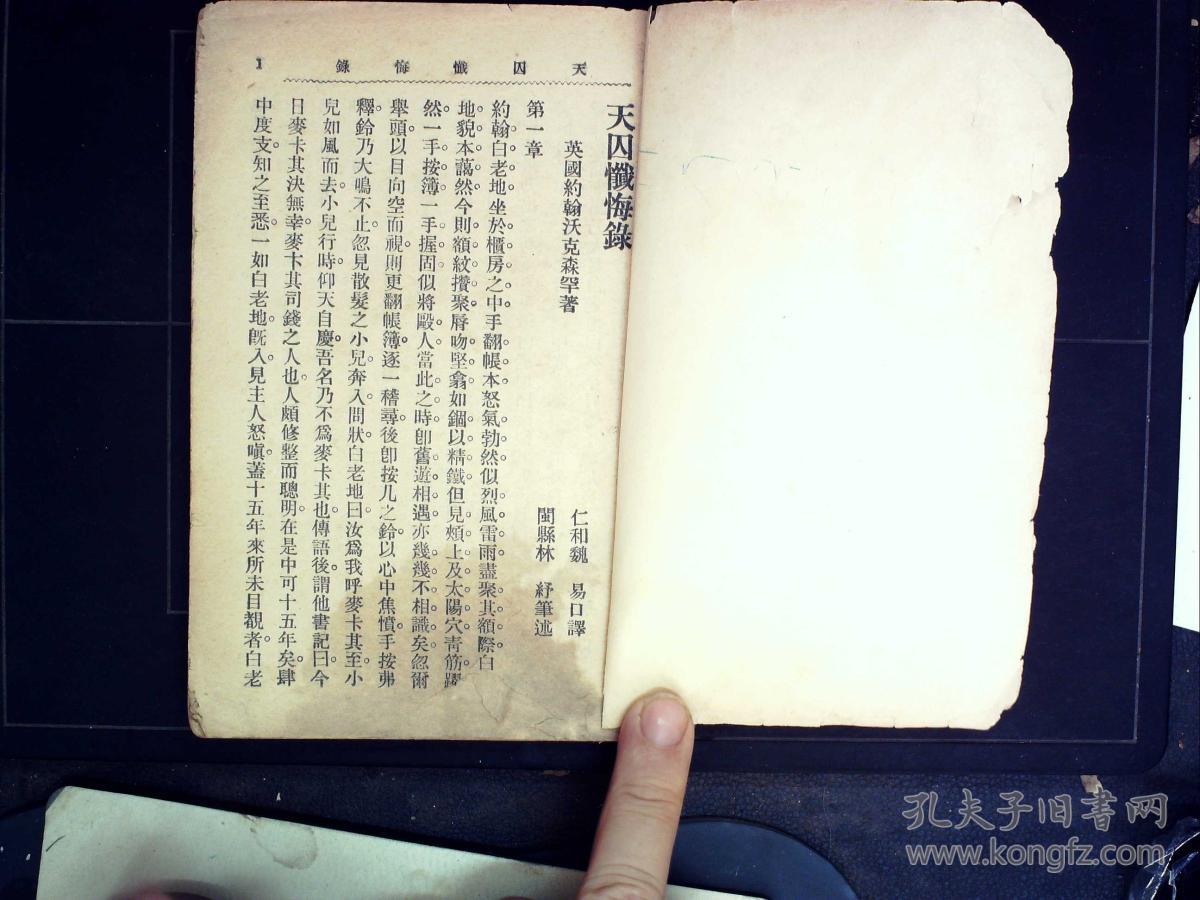 天囚懺悔錄
1
天囚懺悔錄
英國約翰沃克森罕著
仁和魏 易口譯
閩縣林 紓筆述
第一章
約翰白老地坐於櫃房之中手翻帳本怒氣勃然似烈風雷雨盡聚其額際白
地貌本藹然今則額紋攢聚脣吻堅翕如錮以精鐵但見頰上及太陽穴靑筋躍
然一手按簿一手握固似將毆人當此之時卽舊遊相遇亦幾幾不相識矣忽爾
舉頭以目向空而視則更翻帳簿逐一稽尋後卽按几之鈴以心中焦憤手按弗
釋鈴乃大鳴不止忽見散髮之小兒奔入問狀白老地曰汝爲我呼麥卡其至小
兒如風而去小兒行時仰天自慶吾名乃不爲麥卡其也傳語後謂他書記曰今
日麥卡其決無幸麥卞其司錢之人也人頗修整而聰明在是中可十五年矣肆
中度支知之至悉一如白老地旣入見主人怒嗔蓋十五年來所未目覩者白老
孔夫子旧书网
www.kongfz.com